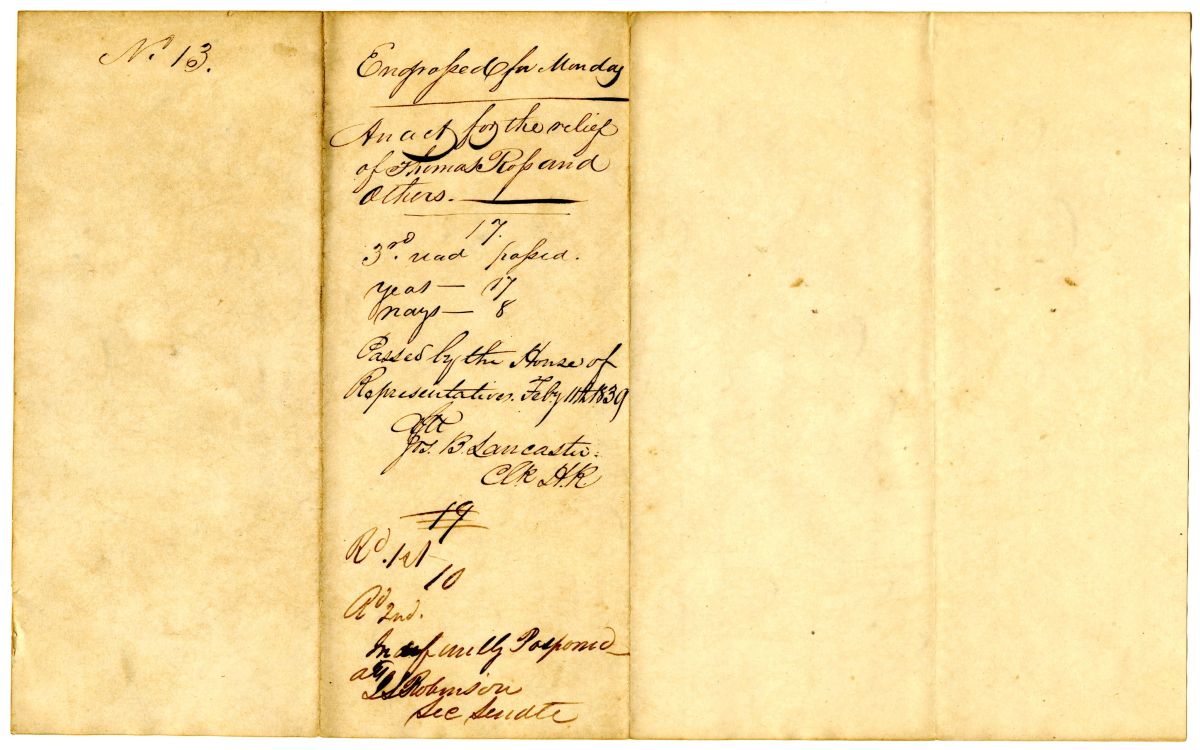 No. 13.
Engrossed for Monday
An act for the relief
of Thomas Ross and
Others.
17.
3rd. read passed.
yeas — 17
nays — 8
Passed by the House of
Representatives. Feby 11th 1839
Att
Jos. B. Lancaster.
Clk H.R
19
Rd. 1st
10
Rd 2nd.
Indefinitly Posponed
L S Robinson
Sec Senate